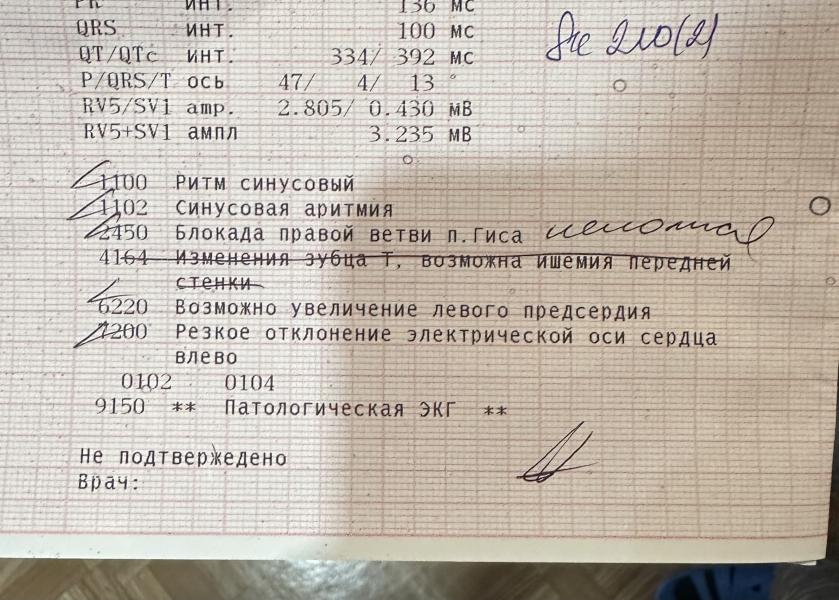 PR инт. 136 мс
QRS инт. 100 мс
QT/QTc инт. 334/ 392 мс
P/QRS/T ось 47/ 4/ 13 °
RV5/SV1 amp. 2.805/ 0.430 мВ
RV5+SV1 ампл 3.235 мВ
210(2)
1100 Ритм синусовый
1102 Синусовая аритмия
2450 Блокада правой ветви п.Гиса
4164 Изменения зубца Т, возможна ишемия передней
стенки
6220 Возможно увеличение левого предсердия
7200 Резкое отклонение электрической оси сердца
влево
0102 0104
9150 ** Патологическая ЭКГ **
Не подтвержедено
Врач: